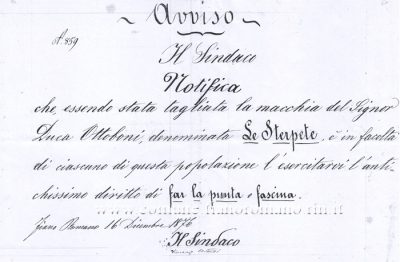 Avviso
N. 859
Il Sindaco
Notifica
che, essendo stata tagliata la macchia del Signor
Duca Ottoboni, denominata Le Sterpete, è in facoltà
di ciascuno di questa popolazione l'esercitarvi l'anti-
chissimo diritto di far la punta e fascina.
Fiano Romano 16 Dicembre 1876
Il Sindaco